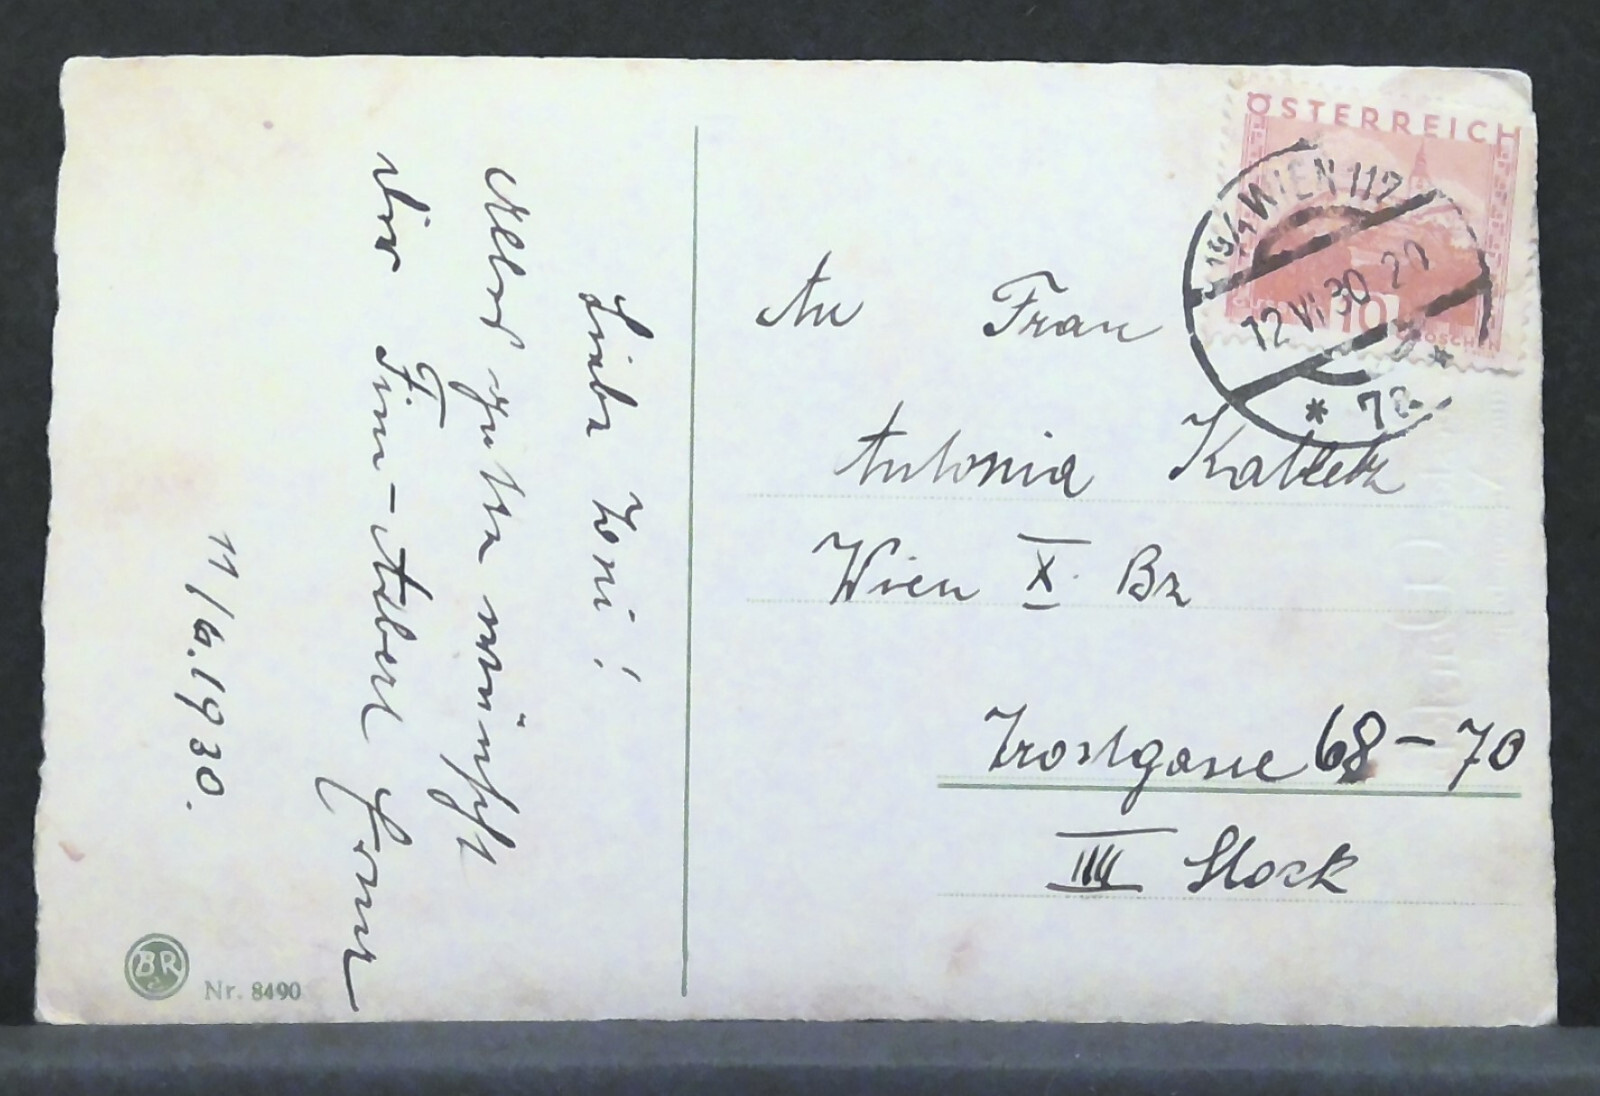 Liebe Toni!
Alles gute wünscht
dir Finn-Abert
11/6.1930.
BR
Nr. 8490
ÖSTERREICH
10 GROSCHEN
WIEN 117
12 VI 30 20
* 7a *
An Frau
Antonia Kabletz
Wien X. Bz
Trostgasse 68-70
IIII Stock